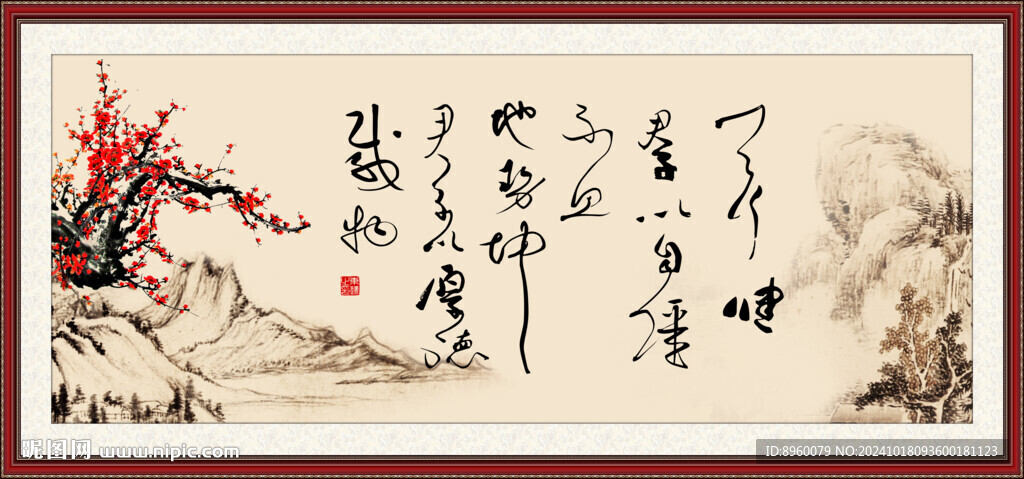 天行健
君子以自强
不息
地势坤
君子以厚德
载物
昵图网 www.nipic.com
ID:8960079 NO:20241018093600181123